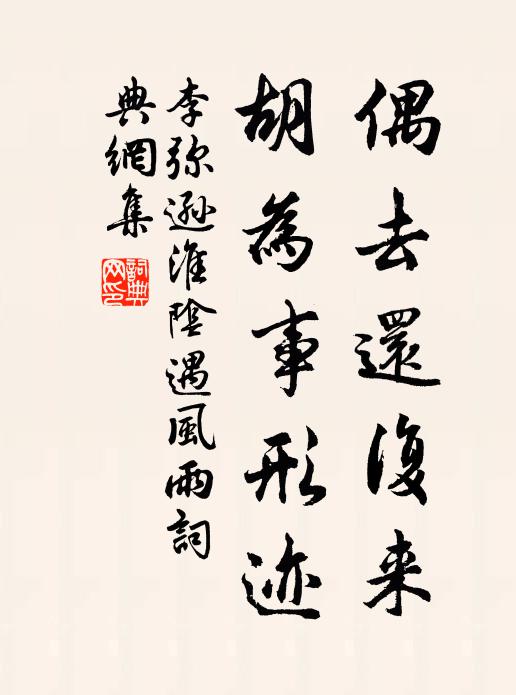 偶去還復来
胡為事形迹
李弥遜淮陰遇風雨詞
典網集
詞典
网印